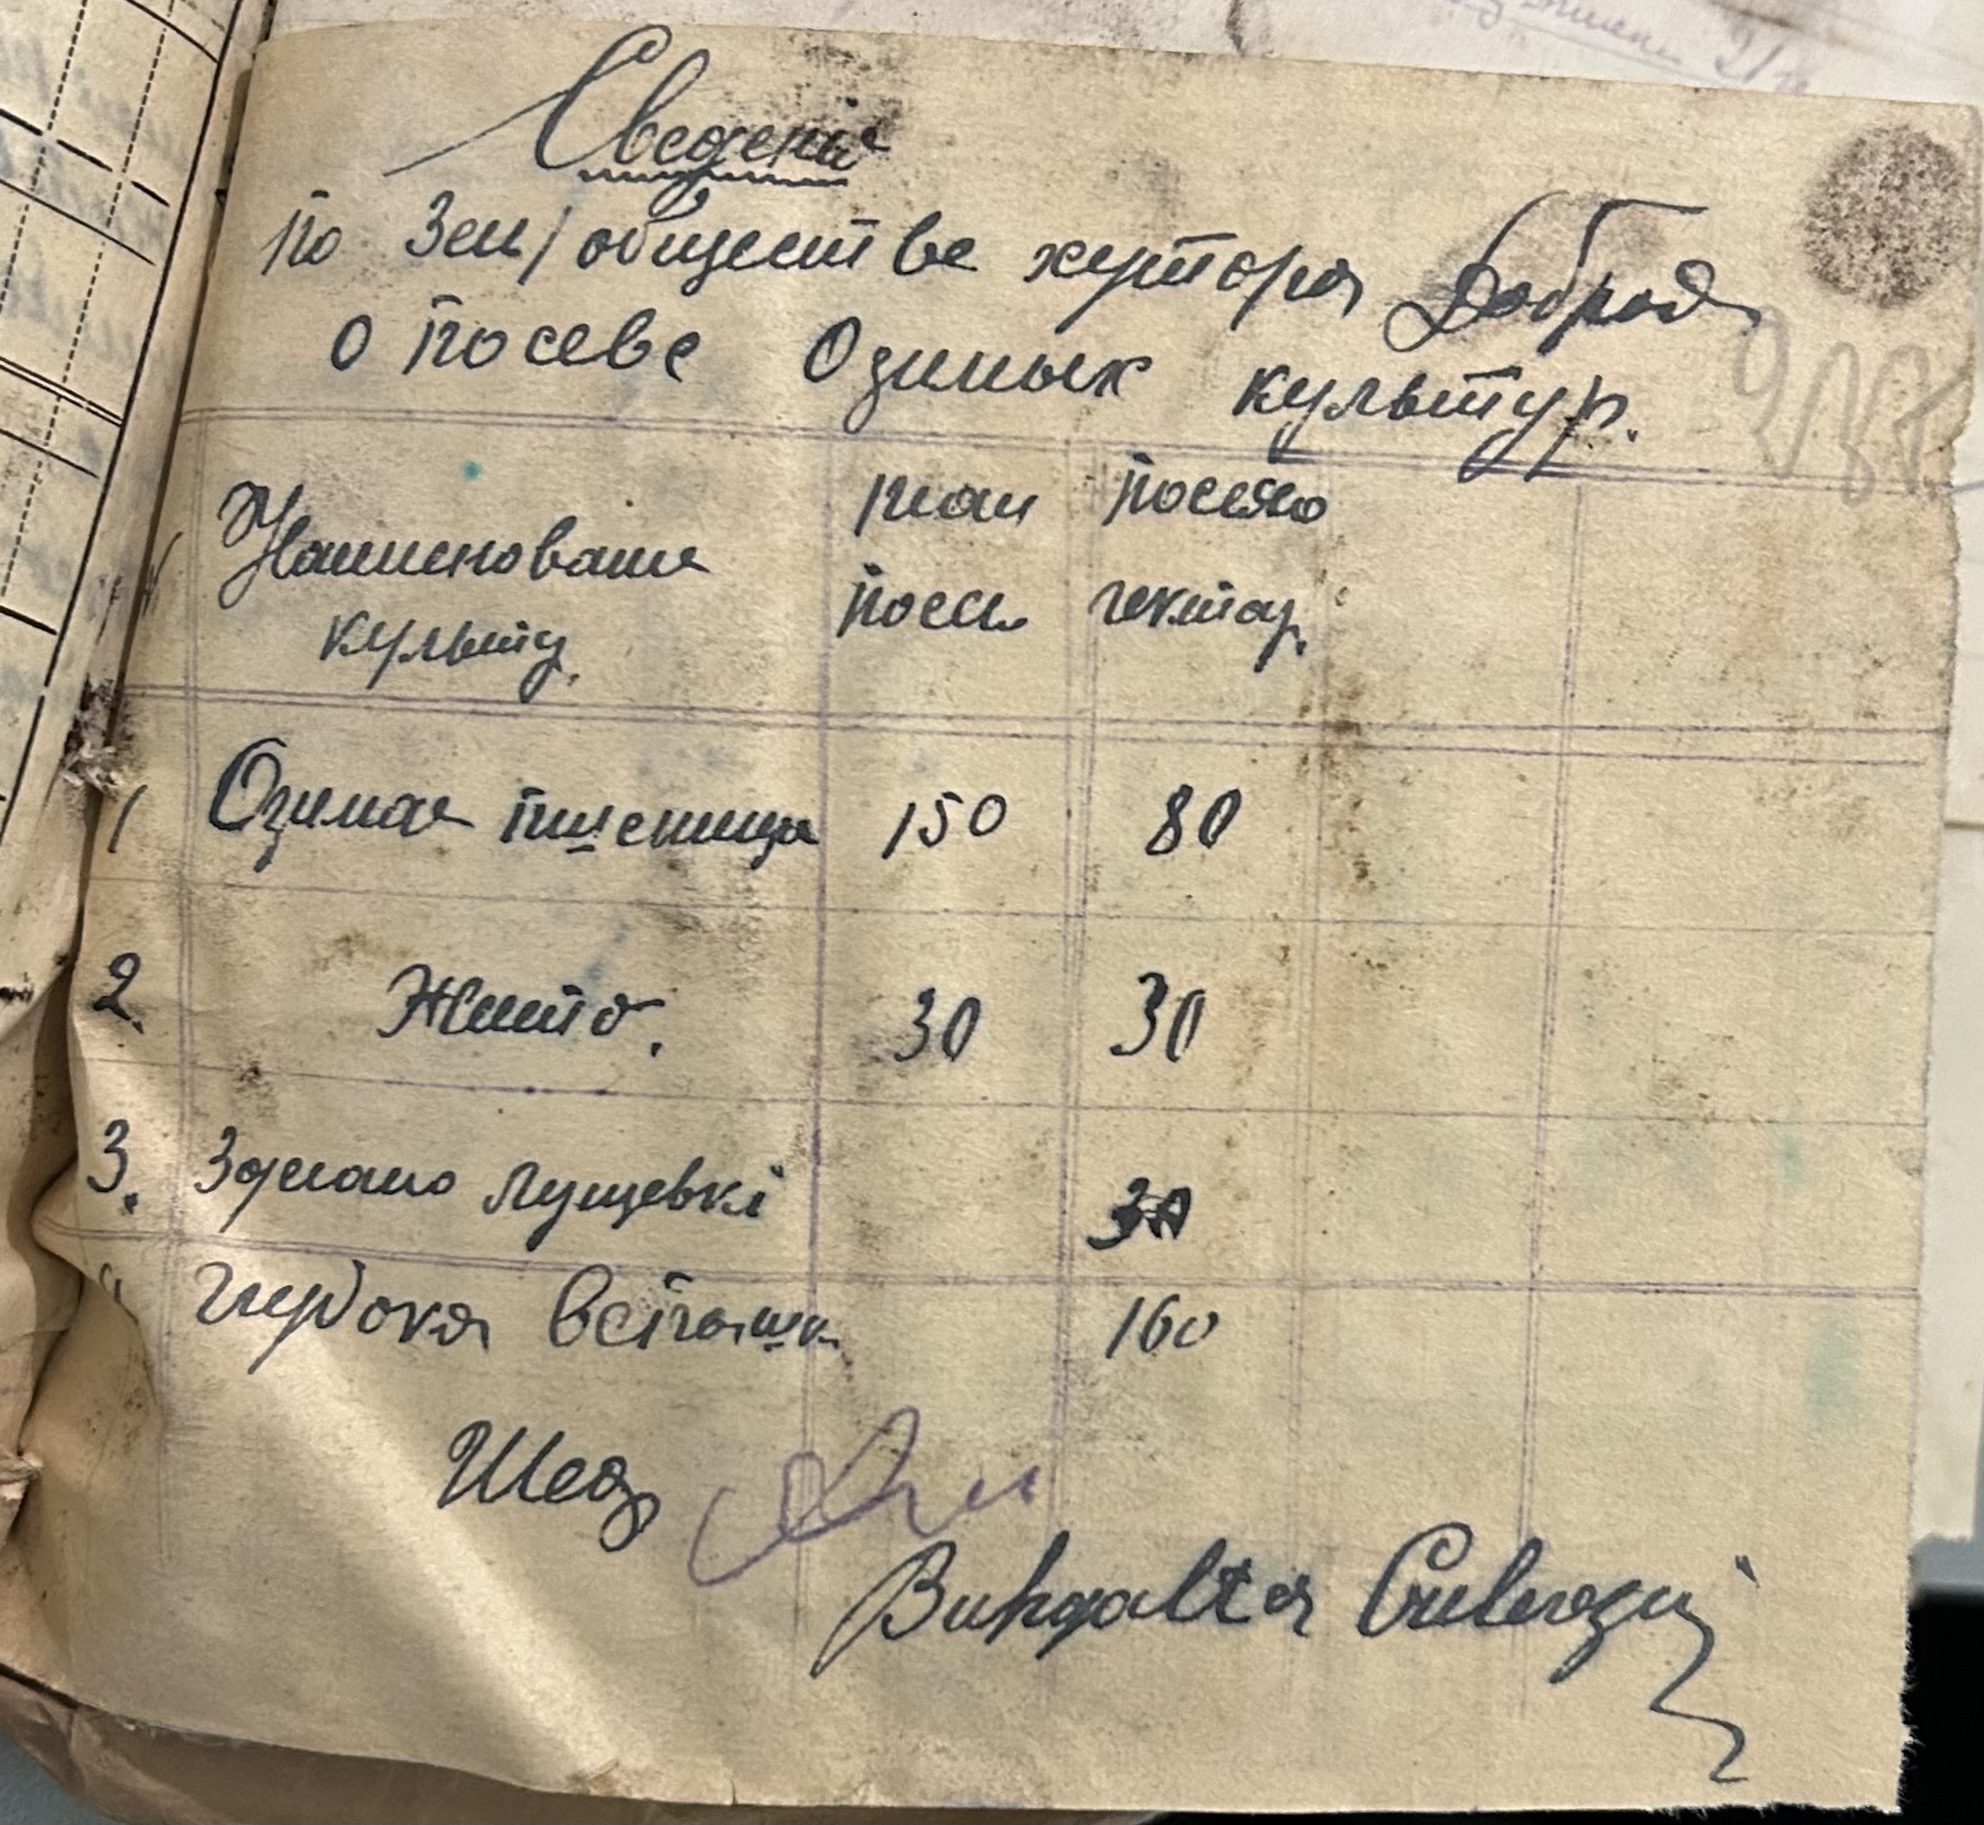 Сведения
по Зем/обществе хутора Доброя
о посеве Озимых культур.
Наименование культу. план посев посеяно гектар.
1 Озимая пшеница 150 80
2. Жито. 30 30
3. Зделано лущевкі 30
глубокая вспашка 160
Шеф
Buhgalter